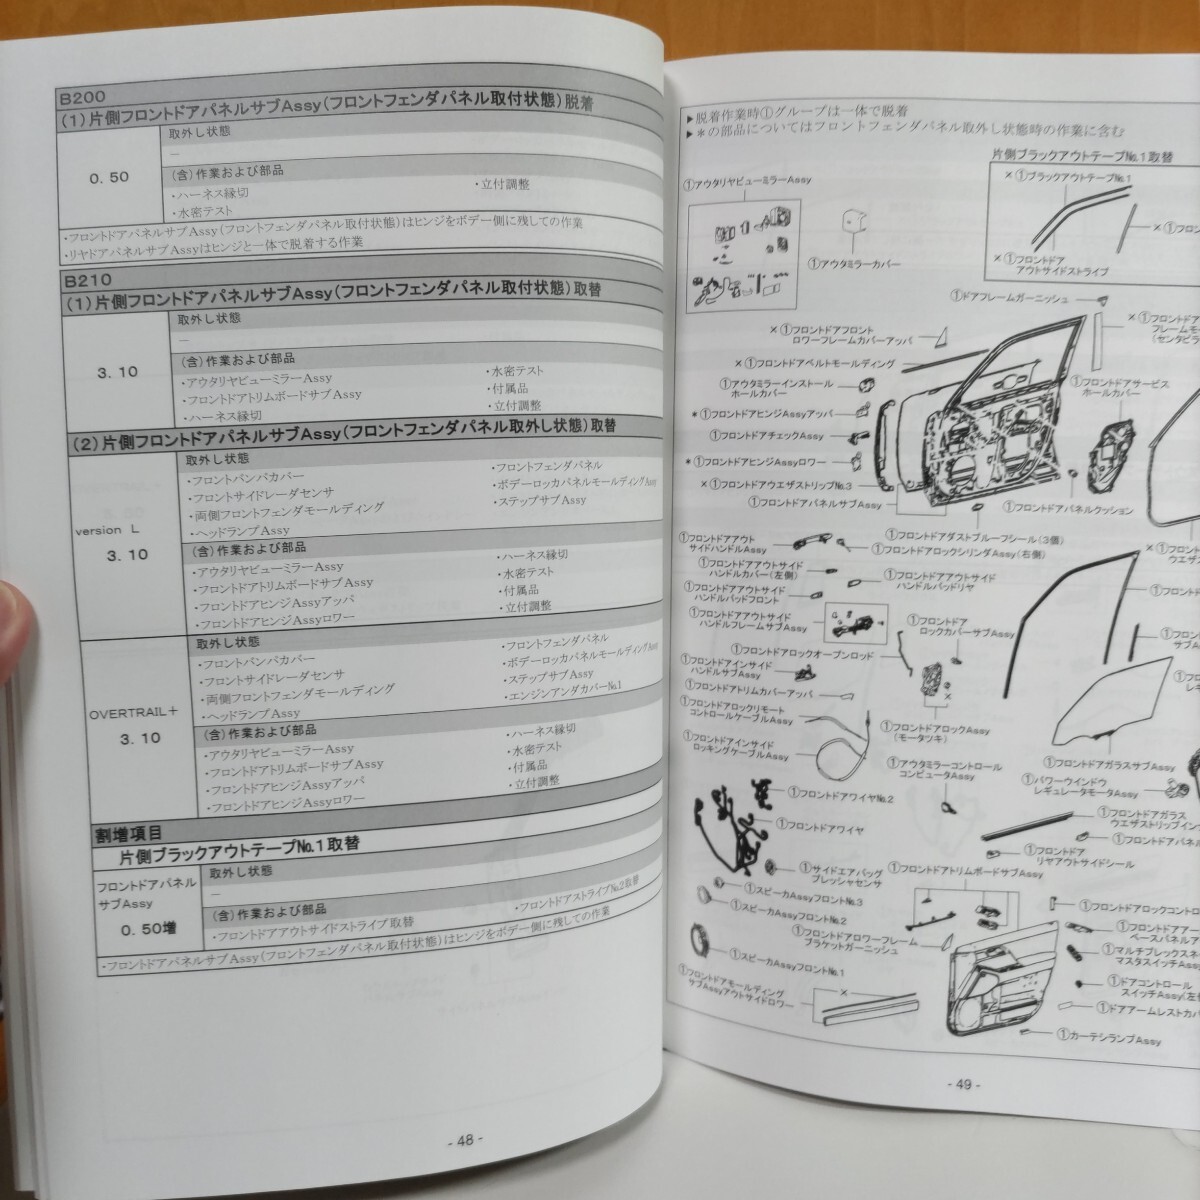 B200
(1)片側フロントドアパネルサブAssy(フロントフェンダパネル取付状態)脱着
0.50
取外し状態
―
(含)作業および部品
・ハーネス縁切
・水密テスト
・立付調整
・フロントドアパネルサブAssy(フロントフェンダパネル取付状態)はヒンジをボデー側に残しての作業
・リヤドアパネルサブAssyはヒンジと一体で脱着する作業
B210
(1)片側フロントドアパネルサブAssy(フロントフェンダパネル取付状態)取替
3.10
取外し状態
―
(含)作業および部品
・アウタリヤビューミラーAssy
・フロントドアトリムボードサブAssy
・ハーネス縁切
・水密テスト
・付属品
・立付調整
(2)片側フロントドアパネルサブAssy(フロントフェンダパネル取外し状態)取替
version L
3.10
取外し状態
・フロントバンパカバー
・フロントサイドレーダセンサ
・両側フロントフェンダモールディング
・ヘッドランプAssy
・フロントフェンダパネル
・ボデーロッカパネルモールディングAssy
・ステップサブAssy
(含)作業および部品
・アウタリヤビューミラーAssy
・フロントドアトリムボードサブAssy
・フロントドアヒンジAssyアッパ
・フロントドアヒンジAssyロワー
・ハーネス縁切
・水密テスト
・付属品
・立付調整
OVERTRAIL+
3.10
取外し状態
・フロントバンパカバー
・フロントサイドレーダセンサ
・両側フロントフェンダモールディング
・ヘッドランプAssy
・フロントフェンダパネル
・ボデーロッカパネルモールディングAssy
・ステップサブAssy
・エンジンアンダカバーNo.1
(含)作業および部品
・アウタリヤビューミラーAssy
・フロントドアトリムボードサブAssy
・フロントドアヒンジAssyアッパ
・フロントドアヒンジAssyロワー
・ハーネス縁切
・水密テスト
・付属品
・立付調整
割増項目
片側ブラックアウトテープNo.1取替
フロントドアパネル
サブAssy
0.50増
取外し状態
―
(含)作業および部品
・フロントドアアウトサイドストライプ取替
・フロントドアストライプNo.2取替
・フロントドアパネルサブAssy(フロントフェンダパネル取付状態)はヒンジをボデー側に残しての作業
- 48 -
▶脱着作業時①グループは一体で脱着
▶＊の部品についてはフロントフェンダパネル取外し状態時の作業に含む
片側ブラックアウトテープNo.1取替
×①ブラックアウトテープNo.1
×①フロン
×①フロントドア
アウトサイドストライプ
①アウタリヤビューミラーAssy
①アウタミラーカバー
①ドアフレームガーニッシュ
×①フロントドアフロント
ロワーフレームカバーアッパ
×①フロントドア
フレームモー
(センタピラ
×①フロントドアベルトモールディング
①アウタミラーインストール
ホールカバー
①フロントドアサービス
ホールカバー
＊①フロントドアヒンジAssyアッパ
①フロントドアチェックAssy
＊①フロントドアヒンジAssyロワー
×①フロントドアウエザストリップNo.3
①フロントドアパネルサブAssy
①フロントドアパネルクッション
①フロントドアダストプルーフシール(3個)
①フロントドアアウト
サイドハンドルAssy
①フロントドアロックシリンダAssy(右側)
×①フロント
ウエザス
①フロントドアアウトサイド
ハンドルカバー(左側)
①フロントドアアウトサイド
ハンドルパッドリヤ
①フロントドアアウトサイド
ハンドルパッドフロント
①フロントド
①フロントドアアウトサイド
ハンドルフレームサブAssy
①フロントドア
ロックカバーサブAssy
①フロントドアロックオープンロッド
①フロントドアインサイド
ハンドルサブAssy
①フロントドアトリムカバーアッパ
①フロントドアロックリモート
コントロールケーブルAssy
×
①フロントドアロックAssy
(モータツキ)
①フロントドアインサイド
ロッキングケーブルAssy
①アウタミラーコントロール
コンピュータAssy
①フロントドアガラスサブAssy
①パワーウインドウ
レギュレータモータAssy
①フロントドアワイヤNo.2
①フロントドアワイヤ
①フロントドアガラス
ウエザストリップイン
①フロントドアパネル
①フロントドア
リヤアウトサイドシール
①サイドエアバッグ
プレッシャセンサ
①フロントドアトリムボードサブAssy
①スピーカAssyフロントNo.3
①スピーカAssyフロントNo.2
①フロントドアロックコントロ
①フロントドアロワーフレーム
ブラケットガーニッシュ
①フロントドアアー
ベースパネルア
①マルチプレックスネ
マスタスイッチAss
①スピーカAssyフロントNo.1
①ドアコントロール
スイッチAssy(左
①フロントドアモールディング
サブAssyアウトサイドロワー
×
①ドアアームレストカバ
①カーテシランプAssy
- 49 -